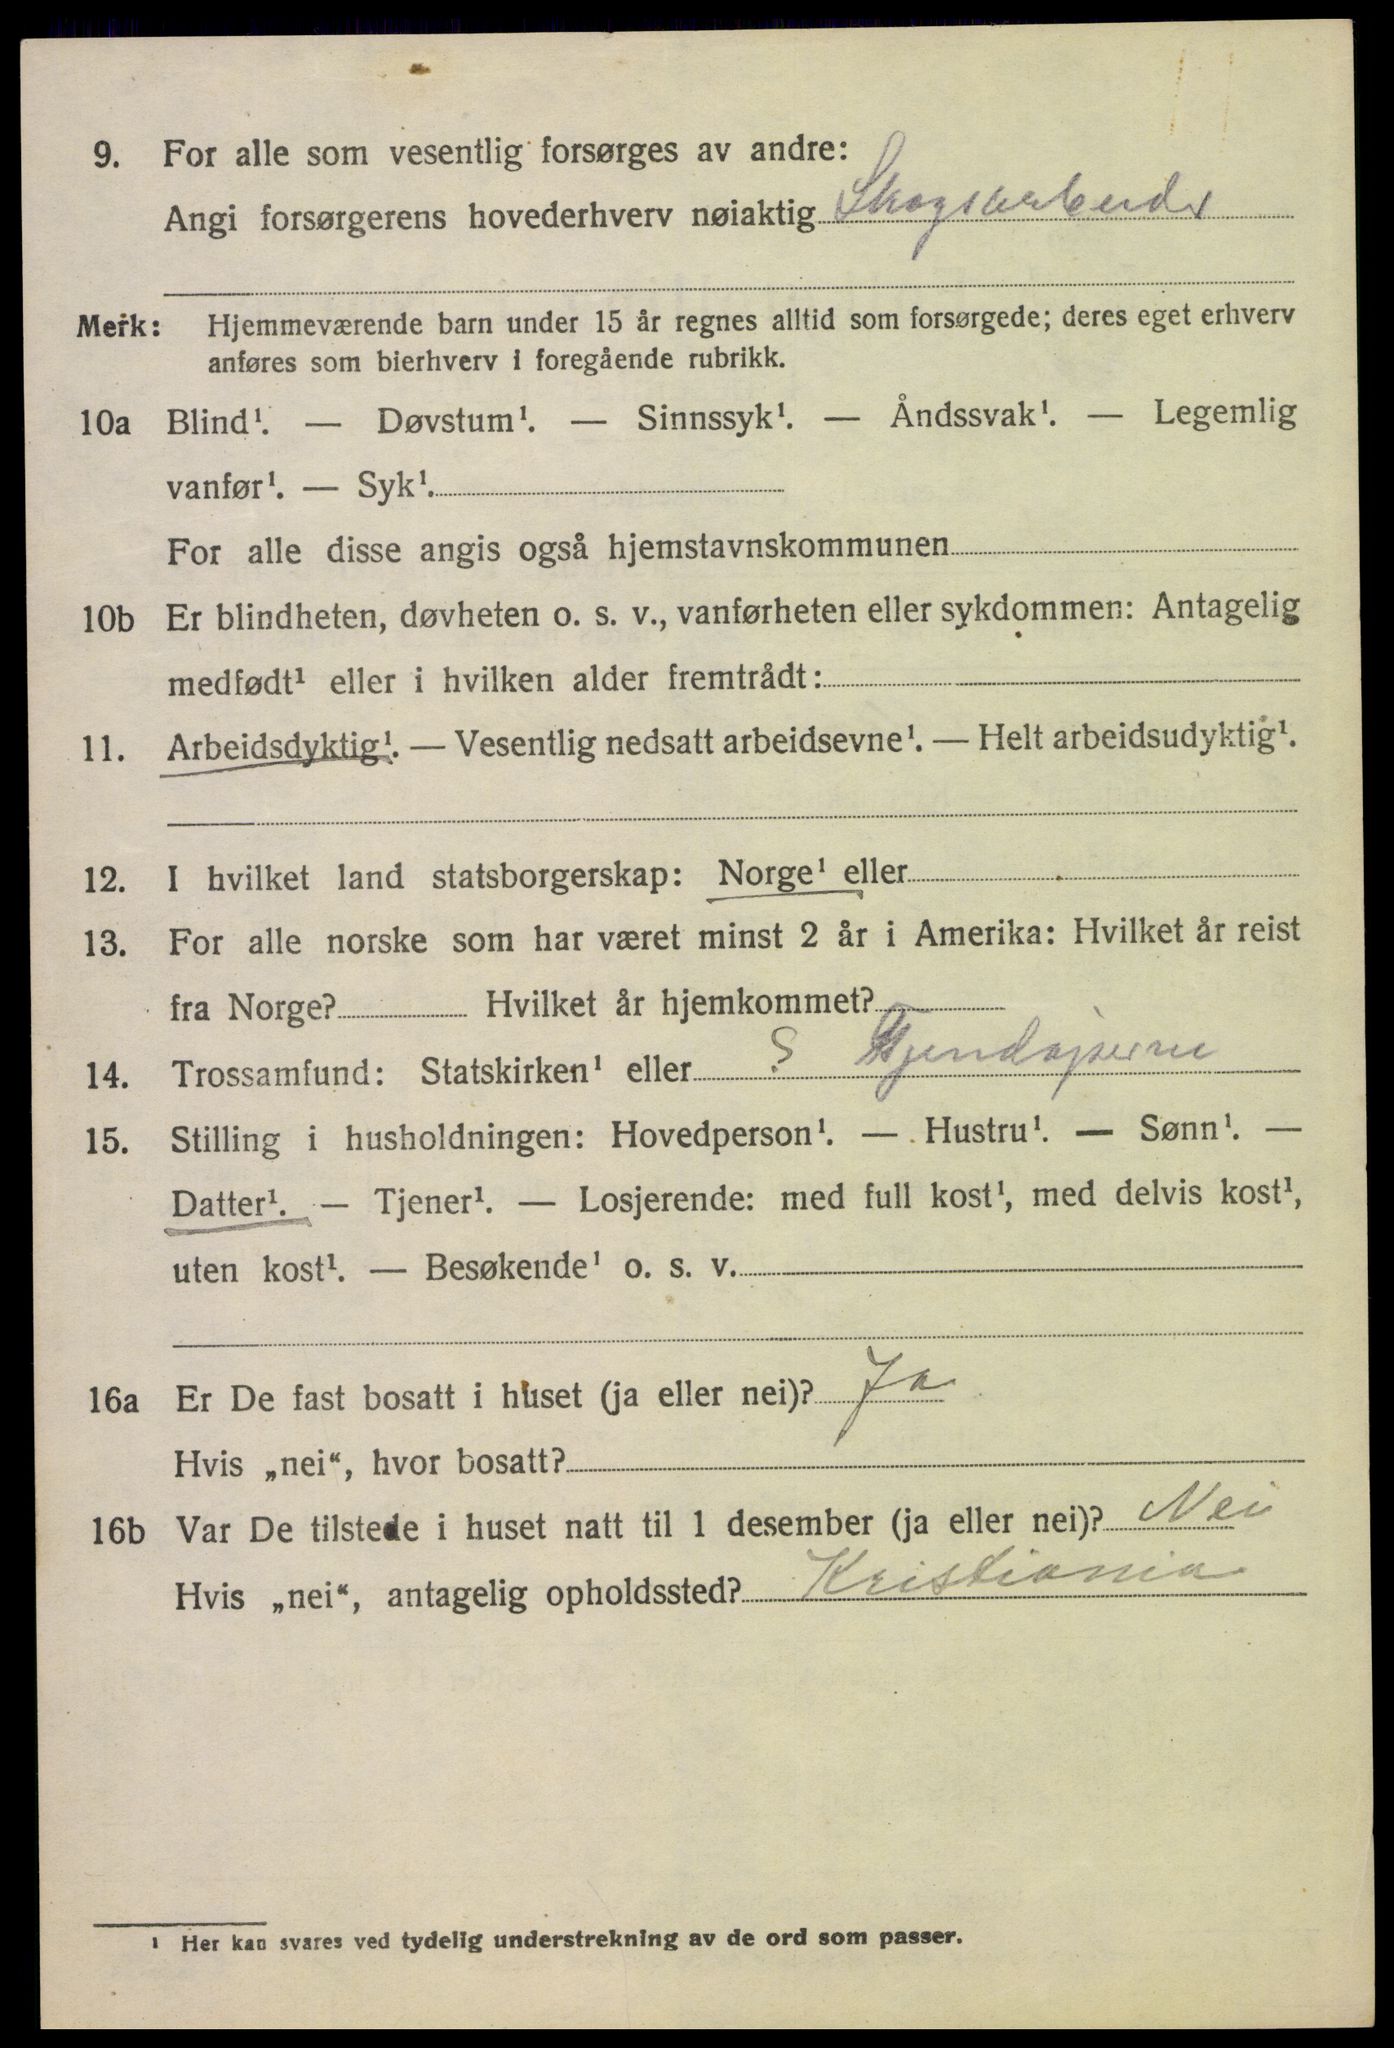 9. For alle som vesentlig forsørges av andre:
Angi forsørgerens hovederhverv nøiaktig Skogsarbeider
Merk: Hjemmeværende barn under 15 år regnes alltid som forsørgede; deres eget erhverv
anføres som bierhverv i foregående rubrikk.
10a Blind¹. — Døvstum¹. — Sinnssyk¹. — Åndssvak¹. — Legemlig
vanfør¹. — Syk¹.
For alle disse angis også hjemstavnskommunen
10b Er blindheten, døvheten o. s. v., vanførheten eller sykdommen: Antagelig
medfødt¹ eller i hvilken alder fremtrådt:
11. Arbeidsdyktig¹. — Vesentlig nedsatt arbeidsevne¹. — Helt arbeidsudyktig¹.
12. I hvilket land statsborgerskap: Norge¹ eller
13. For alle norske som har været minst 2 år i Amerika: Hvilket år reist
fra Norge? Hvilket år hjemkommet?
14. Trossamfund: Statskirken¹ eller ?
15. Stilling i husholdningen: Hovedperson¹. — Hustru¹. — Sønn¹. —
Datter¹. — Tjener¹. — Losjerende: med full kost¹, med delvis kost¹,
uten kost¹. — Besøkende¹ o. s. v.
16a Er De fast bosatt i huset (ja eller nei)? Ja
Hvis „nei“, hvor bosatt?
16b Var De tilstede i huset natt til 1 desember (ja eller nei)? Nei
Hvis „nei“, antagelig opholdssted? Kristiania
¹ Her kan svares ved tydelig understrekning av de ord som passer.